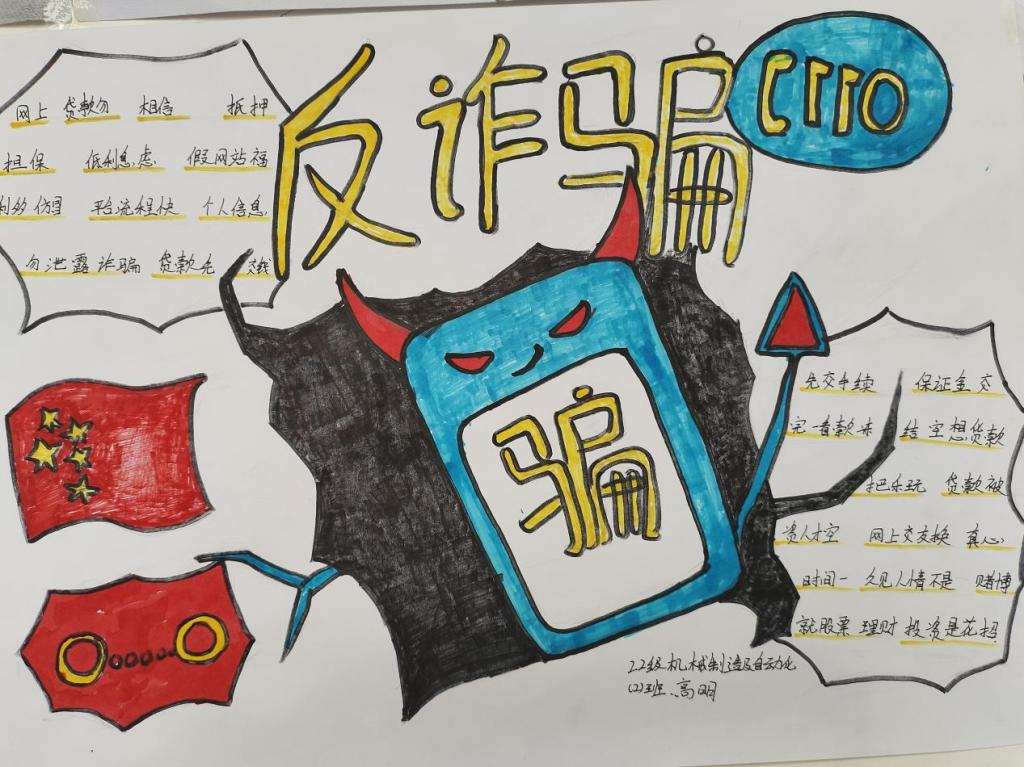 反诈骗
网上 贷款勿 相信 抵押
担保 低利息虑 假网站福
利多仿冒 平台流程快 个人信息
勿泄露诈骗 贷款先 交钱
骗
先交手续 保证金交
完一看款未 结空想贷款
把乐玩 贷款被
贵人才空 网上交友换 真心
时间一 久见人情不是 赌博
就股票 理财 投资是花招
22级机械制造及自动化
(2)班.高明